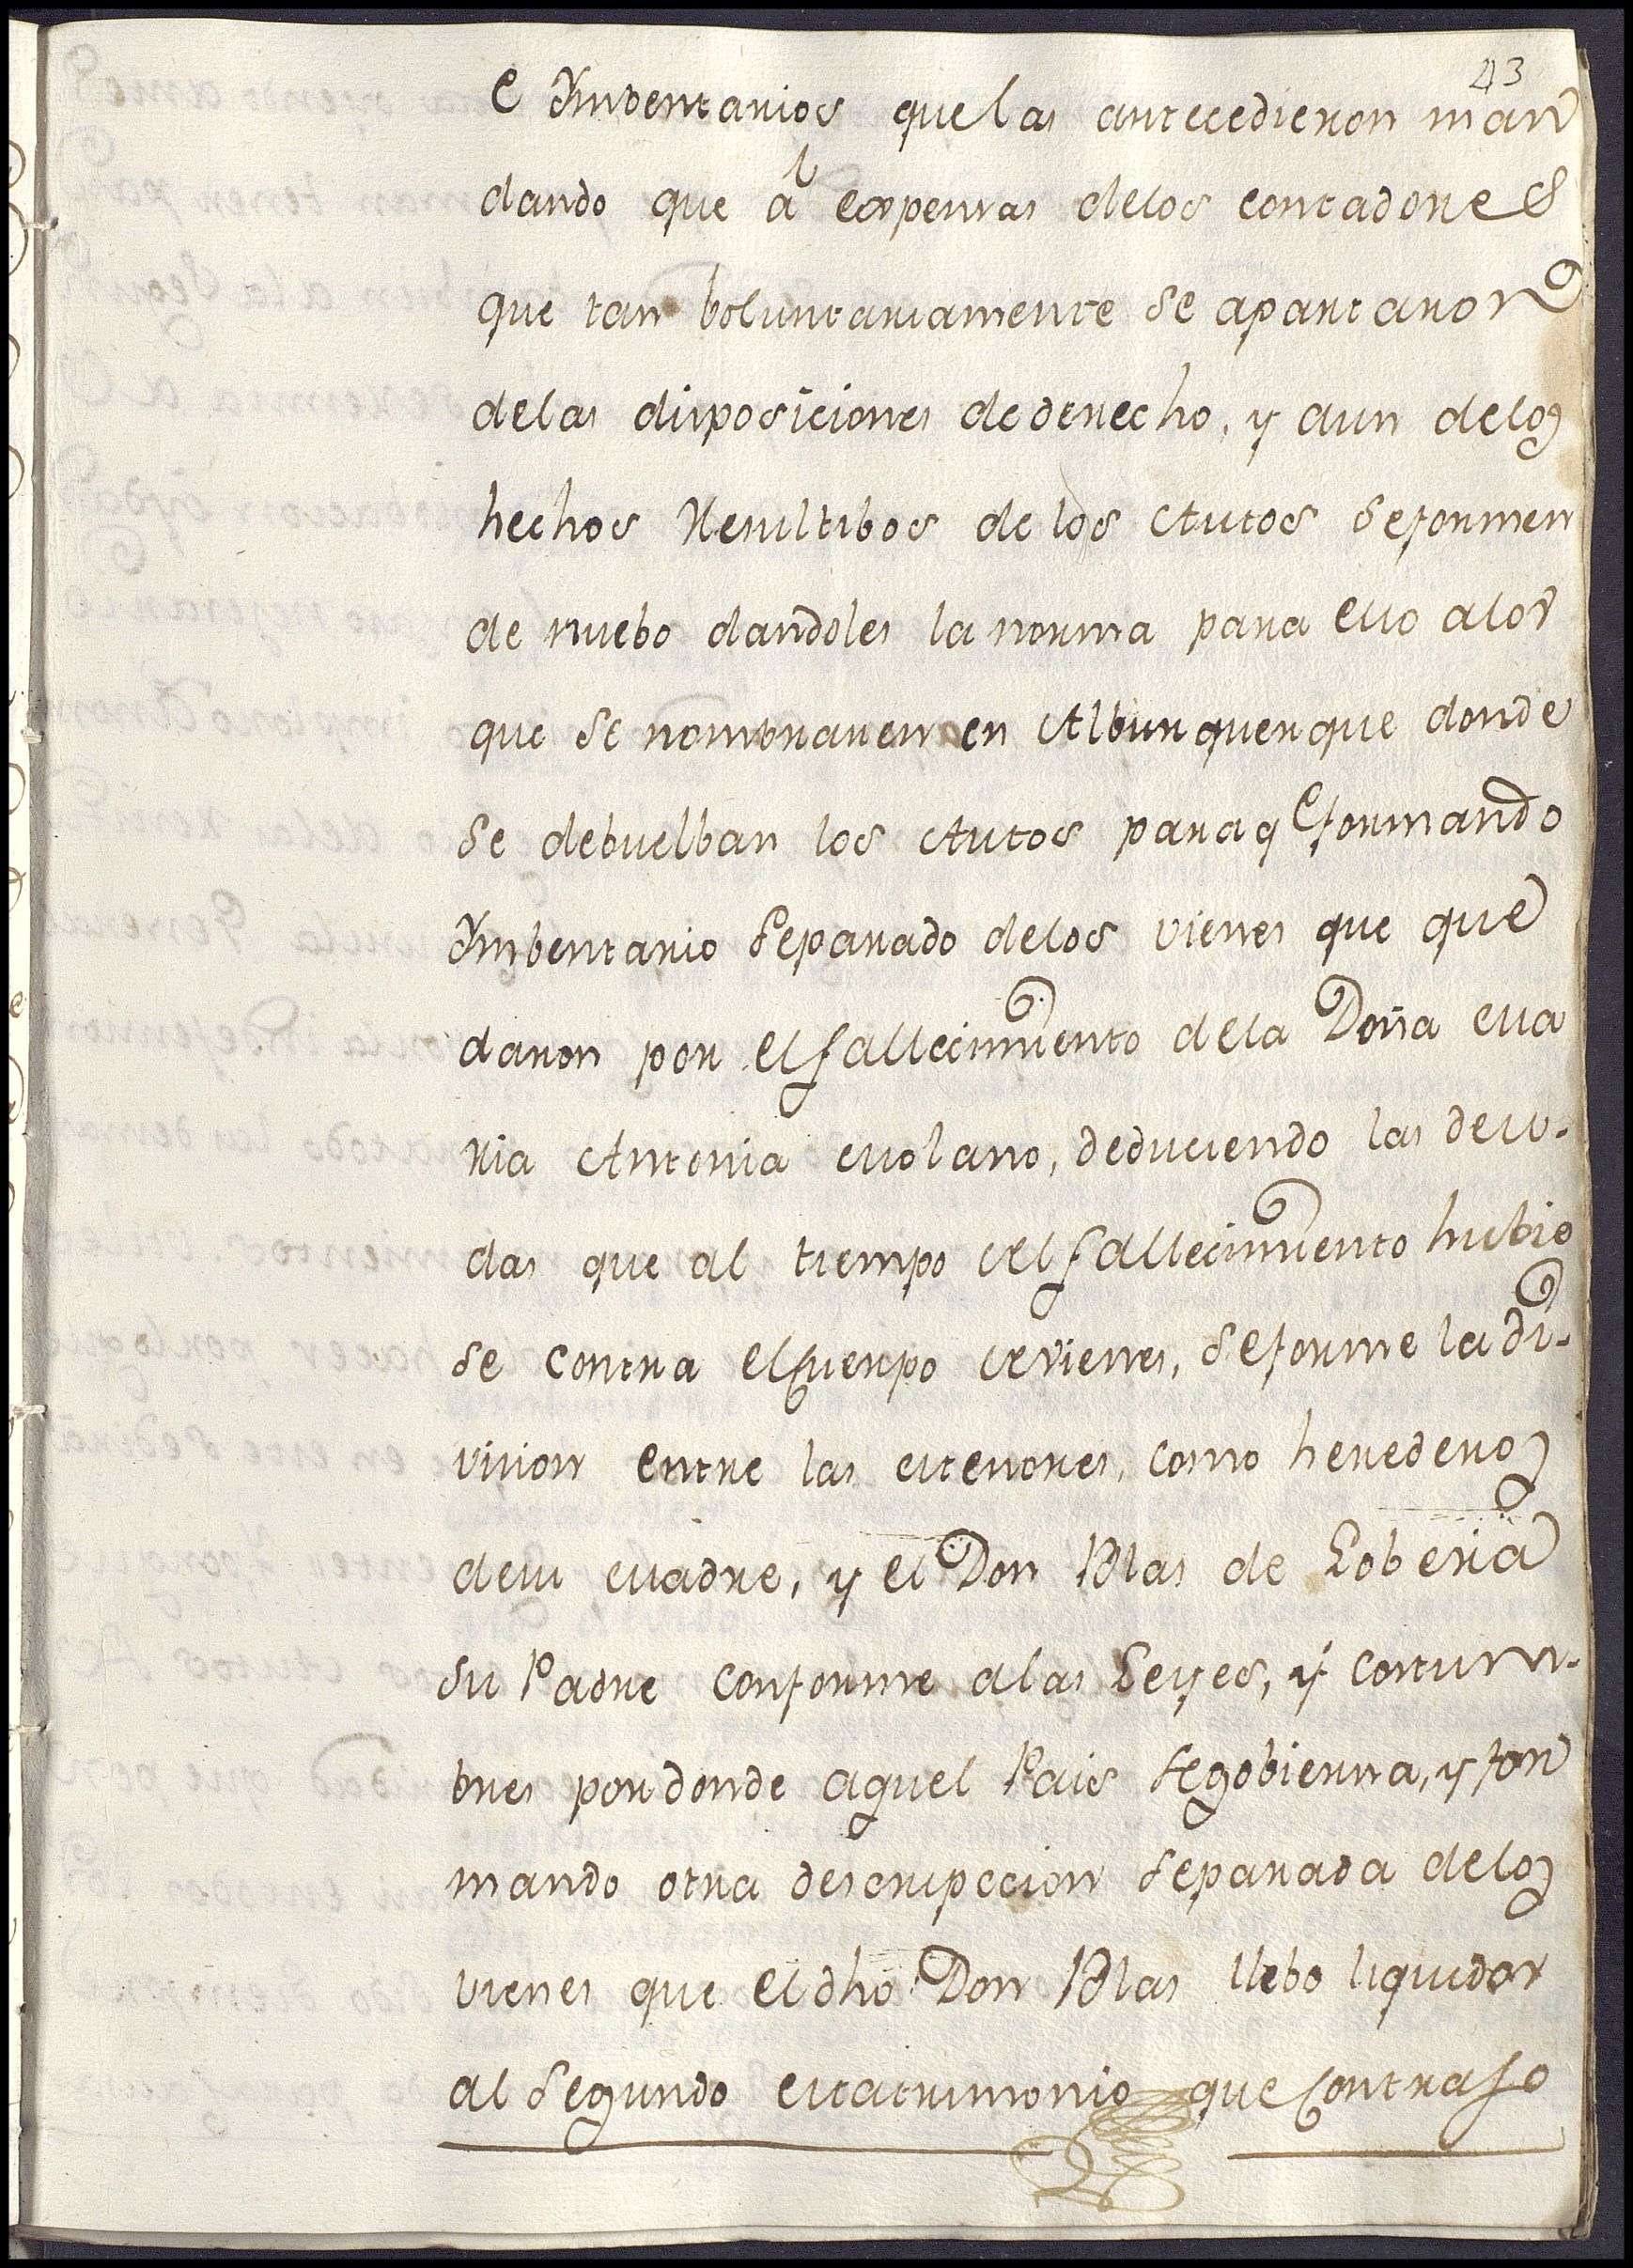 43
e Ymbentarios que las antecedieron man
dando que â expensas delos contadores
que tan boluntariamente se apartaron
delas disposiciones de derecho, y aun delos
hechos Resultibos de los Autos se formen
de nuebo dandoles la norma para ello alos
que se nombraren en Alburquerque donde
se debuelban los Autos para q.e formando
Ymbentario Separado delos vienes que que
daron por el fallecimiento dela Doña Ma
ria Antonia Molano, deduciendo las deu-
das que al tiempo del fallecimiento hubie
se contra el cuerpo de vienes, se forme la di-
vision entre las Menores, como herederos
de su Madre, y el Don Blas de Loberia
su Padre conforme alas Leyes, y costum-
bres por donde aquel Pais se gobierna, y for
mando otra descripccion Separada delos
vienes que el dho Don Blas llebo liquidos
al Segundo Matrimonio que contrajo